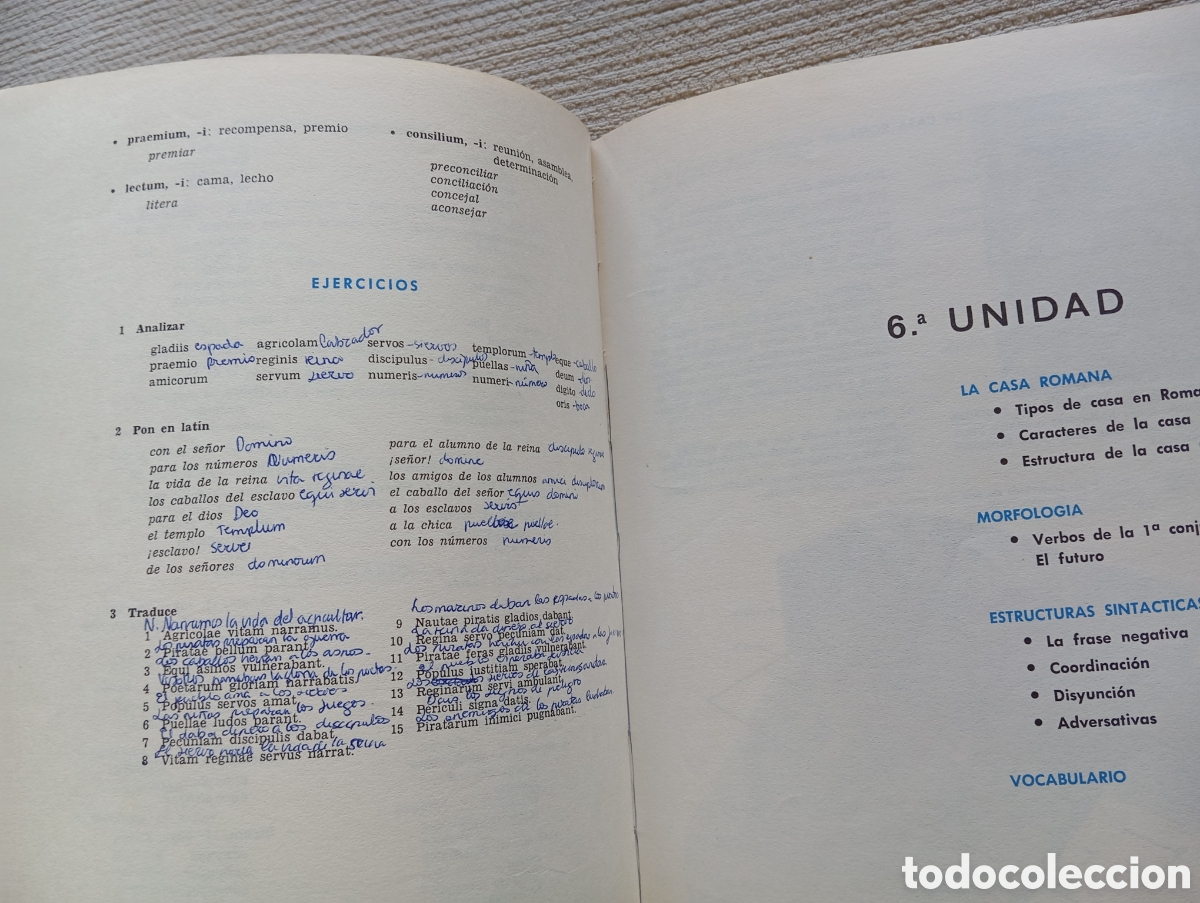 • praemium, -i: recompensa, premio
premiar
• lectum, -i: cama, lecho
litera
• consilium, -i: reunión, asamblea,
determinación
preconciliar
conciliación
concejal
aconsejar
EJERCICIOS
1 Analizar
gladiis espada agricolam labrador servos -siervos templorum -templ
praemio premio reginis reina discipulus -discipulo puellas -niña
amicorum servum siervo numeris -numeros numeri -número
eque -caballo
deum -dios
digito -dedo
oris -boca
2 Pon en latín
con el señor Domino
para los números Numeris
la vida de la reina vita reginae
los caballos del esclavo equi servi
para el dios Deo
el templo Templum
¡esclavo! serve
de los señores dominorum
para el alumno de la reina discipulo
¡señor! domine
los amigos de los alumnos amici
el caballo del señor equus domini
a los esclavos servis
a la chica puellae
con los números numeris
3 Traduce
N. Narramos la vida del agricultor.
1 Agricolae vitam narramus.
Los piratas preparan la guerra
2 Piratae bellum parant.
Los caballos herían a los asnos.
3 Equi asinos vulnerabant.
la gloria de los poetas
4 Poetarum gloriam narrabatis.
El pueblo ama a los siervos
5 Populus servos amat.
Las niñas preparan los juegos.
6 Puellae ludos parant.
El daba dinero a los discipulos
7 Pecuniam discipulis dabat.
El siervo narra la vida de la reina
8 Vitam reginae servus narrat.
Los marinos daban las espadas a los
9 Nautae piratis gladios dabant.
La reina da dinero al siervo
10 Regina servo pecuniam dat.
Los piratas herían con las espadas a las
11 Piratae feras gladiis vulnerabant.
El pueblo esperaba justicia
12 Populus justitiam sperabat.
Los siervos de las reinas
13 Reginarum servi ambulant.
Dais los signos de peligro
14 Periculi signa datis.
Los enemigos de los piratas luchaban
15 Piratarum inimici pugnabant.
6.ª UNIDAD
LA CASA ROMANA
• Tipos de casa en Roma
• Caracteres de la casa
• Estructura de la casa
MORFOLOGIA
• Verbos de la 1ª conj
El futuro
ESTRUCTURAS SINTACTICAS
• La frase negativa
• Coordinación
• Disyunción
• Adversativas
VOCABULARIO
todocoleccion